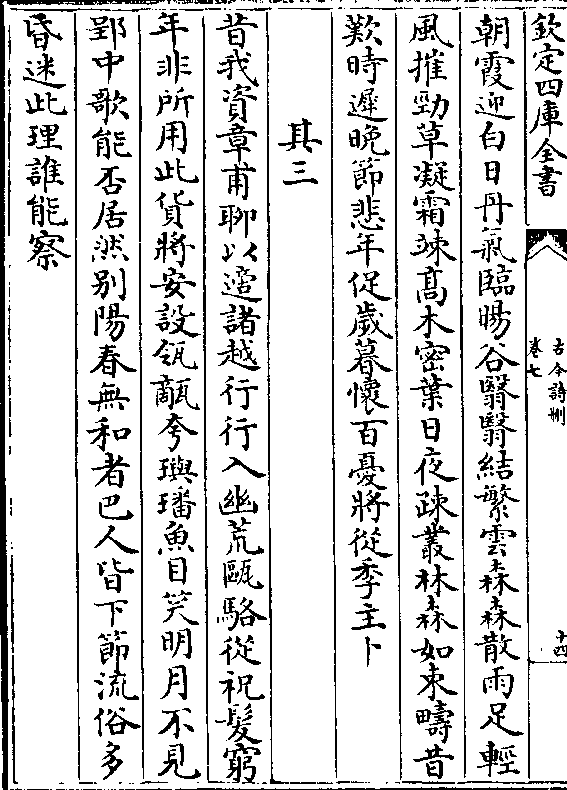 欽定四庫全書
古今詩刪
卷七
十四
朝霞迎白日丹氣臨暘谷翳翳結繁雲森森散雨足輕
風摧勁草凝霜竦高木密葉日夜疎叢林森如束疇昔
歎時遲晚節悲年促歲暮懷百憂將從季主卜
其三
昔我資章甫聊以適諸越行行入幽荒甌駱從祝髮窮
年非所用此貨將安設瓴甋夸璵璠魚目笑明月不見
郢中歌能否居然別陽春無和者巴人皆下節流俗多
昏迷此理誰能察